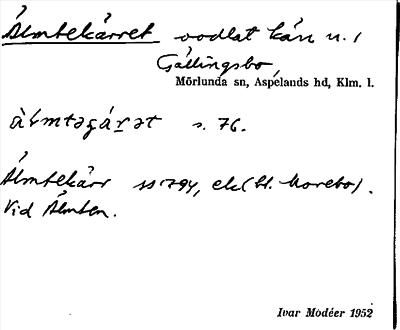 Älmtekärret oodlat kärr u. /
Gällingsbo
Mörlunda sn, Aspelands hd, Klm. l.
s. 76.
Älmtekärr ss 1794, ek (bl. Morebo).
Vid Älmten.
Ivar Modéer 1952